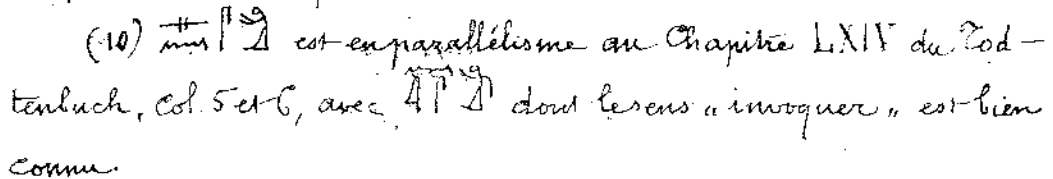 (10) est en parallélisme au Chapitre LXIV du Tod-
tenbuch, col. 5 et 6, avec dont le sens „ invoquer „ est bien
connu.